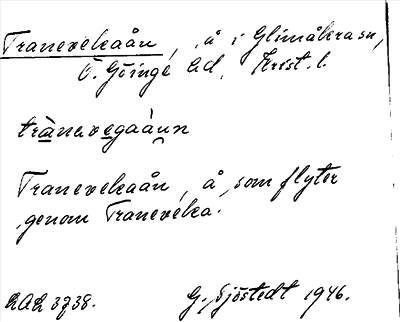 Tranevekaån, å i Glimåkra sn,
Ö. Göinge hd, Krist. l.
trànevegaàun
Tranevekaån, å, som flyter
genom Traneveka.
LAL 3738.    G. Sjöstedt 1946.